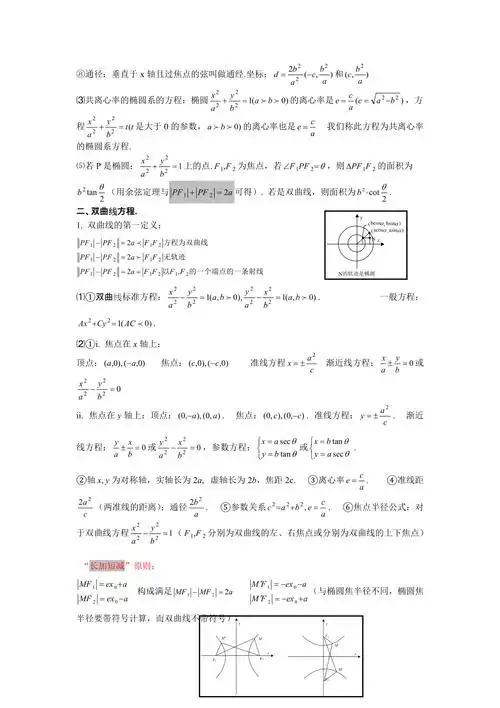 ⑧通径：垂直于 x 轴且过焦点的弦叫做通径.坐标：d = 2b²/a² (−c, b²/a) 和 (c, b²/a)
⑶共离心率的椭圆系的方程：椭圆 x²/a² + y²/b² = 1(a > b > 0) 的离心率是 e = c/a (c = √(a²−b²))，方
程 x²/a² + y²/b² = t(t 是大于 0 的参数，a > b > 0) 的离心率也是 e = c/a 我们称此方程为共离心率
的椭圆系方程.
⑸若 P 是椭圆：x²/a² + y²/b² = 1 上的点. F₁,F₂ 为焦点，若∠F₁PF₂=θ，则 ΔPF₁F₂ 的面积为
b² tan θ/2（用余弦定理与 |PF₁|+|PF₂| = 2a 可得）. 若是双曲线，则面积为 b²·cot θ/2 .
二、双曲线方程.
1. 双曲线的第一定义：
|PF₁|−|PF₂| = 2a < |F₁F₂| 方程为双曲线
|PF₁|−|PF₂| = 2a > |F₁F₂| 无轨迹
|PF₁|−|PF₂| = 2a = |F₁F₂| 以F₁,F₂ 的一个端点的一条射线
(bcosα, bsinα)
(acosα, asinα)
N的轨迹是椭圆
⑴①双曲线标准方程：x²/a² − y²/b² = 1(a,b > 0), y²/a² − x²/b² = 1(a,b > 0) . 一般方程：
Ax²+Cy²=1(AC < 0) .
⑵①i. 焦点在 x 轴上：
顶点：(a,0),(−a,0) 焦点：(c,0),(−c,0) 准线方程 x = ± a²/c 渐近线方程：x/a ± y/b = 0 或
x²/a² − y²/b² = 0
ii. 焦点在 y 轴上：顶点：(0,−a),(0,a) . 焦点：(0,c),(0,−c) . 准线方程：y = ± a²/c . 渐近
线方程：y/a ± x/b = 0 或 y²/a² − x²/b² = 0，参数方程：{x = a sec θ y = b tan θ 或 {x = b tan θ y = a sec θ .
②轴 x, y 为对称轴，实轴长为 2a, 虚轴长为 2b，焦距 2c. ③离心率 e = c/a . ④准线距
2a²/c（两准线的距离）；通径 2b²/a . ⑤参数关系 c² = a² + b², e = c/a . ⑥焦点半径公式：对
于双曲线方程 x²/a² − y²/b² = 1（F₁,F₂ 分别为双曲线的左、右焦点或分别为双曲线的上下焦点）
“长加短减”原则：
|MF₁| = ex₀+a
|MF₂| = ex₀−a 构成满足 |MF₁|−|MF₂| = 2a |M′F₁| = −ex₀−a
|M′F₂| = −ex₀+a（与椭圆焦半径不同，椭圆焦
半径要带符号计算，而双曲线不带符号）